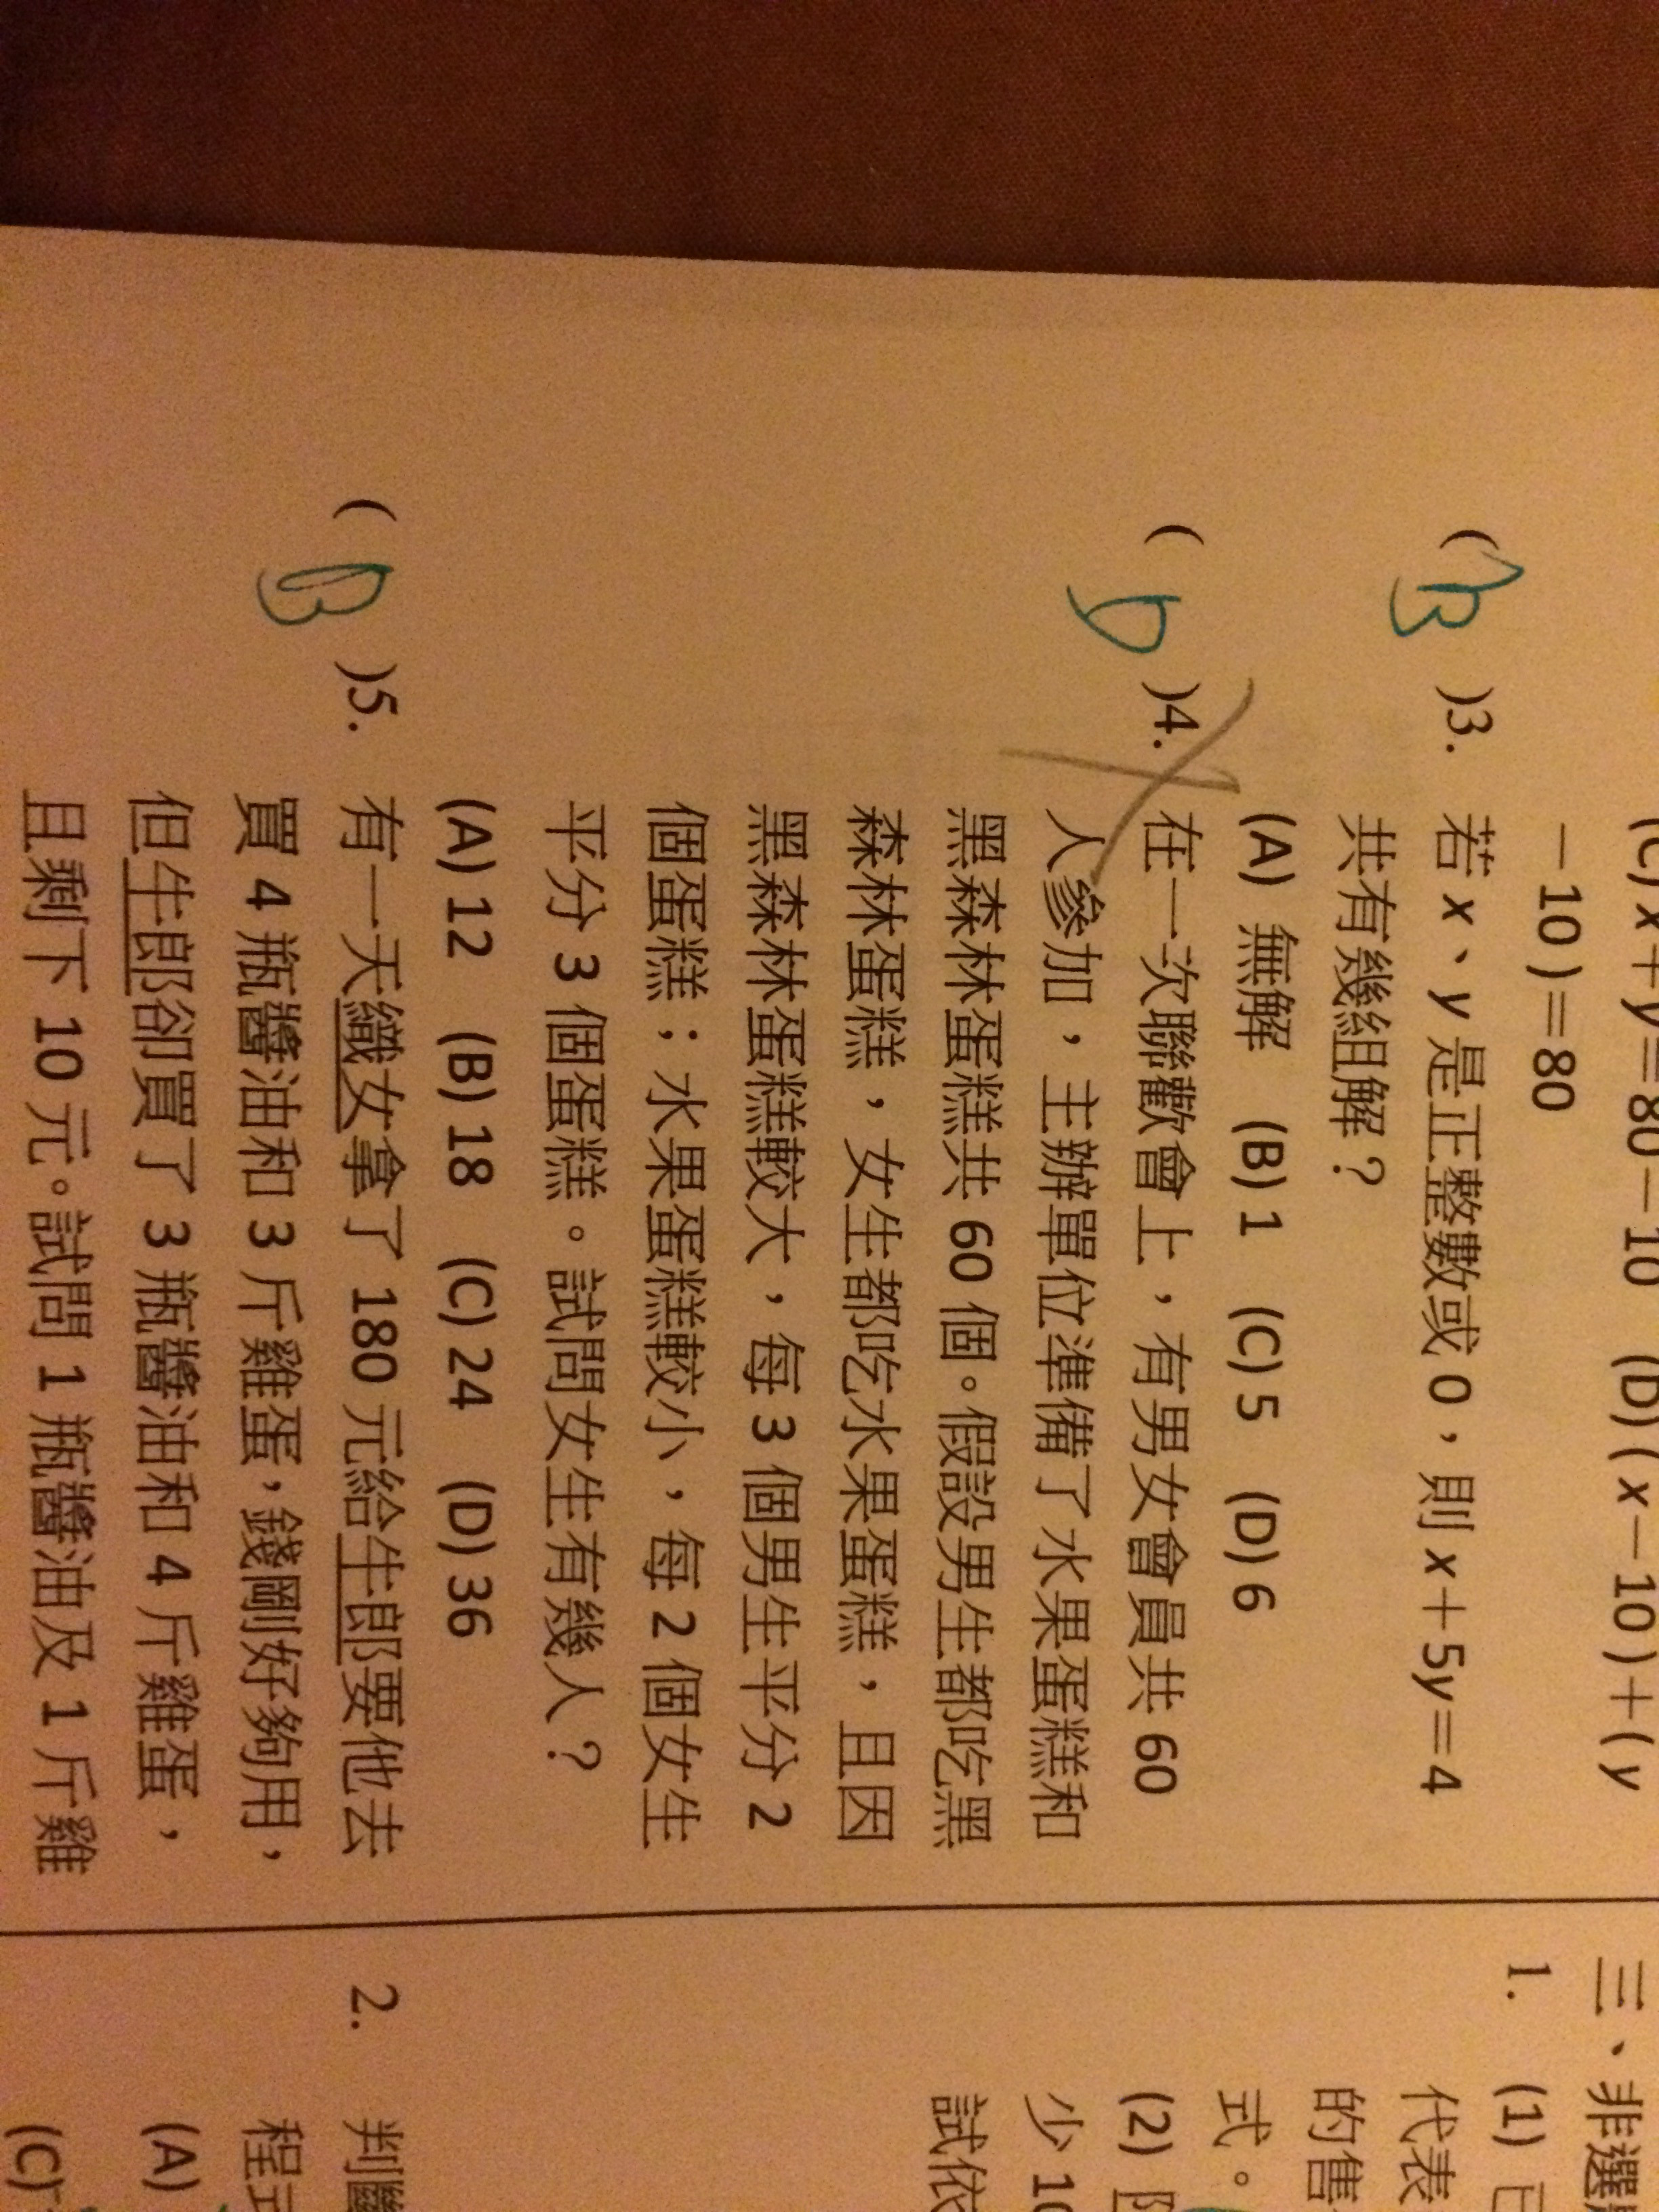 (C) x＋y＝80－10 (D) ( x－10 )＋( y
－10 )＝80
( B )3. 若 x、y 是正整數或 0，則 x＋5y＝4
共有幾組解？
(A) 無解 (B) 1 (C) 5 (D) 6
( D )4. 在一次聯歡會上，有男女會員共 60
人參加，主辦單位準備了水果蛋糕和
黑森林蛋糕共 60 個。假設男生都吃黑
森林蛋糕，女生都吃水果蛋糕，且因
黑森林蛋糕較大，每 3 個男生平分 2
個蛋糕；水果蛋糕較小，每 2 個女生
平分 3 個蛋糕。試問女生有幾人？
(A) 12 (B) 18 (C) 24 (D) 36
( B )5. 有一天織女拿了 180 元給牛郎要他去
買 4 瓶醬油和 3 斤雞蛋，錢剛好夠用，
但牛郎卻買了 3 瓶醬油和 4 斤雞蛋，
且剩下 10 元。試問 1 瓶醬油及 1 斤雞
三、非選
1. (1)
代表
的售
式。
(2)
少 10
試依
2. 判斷
程式
(A)
(C)